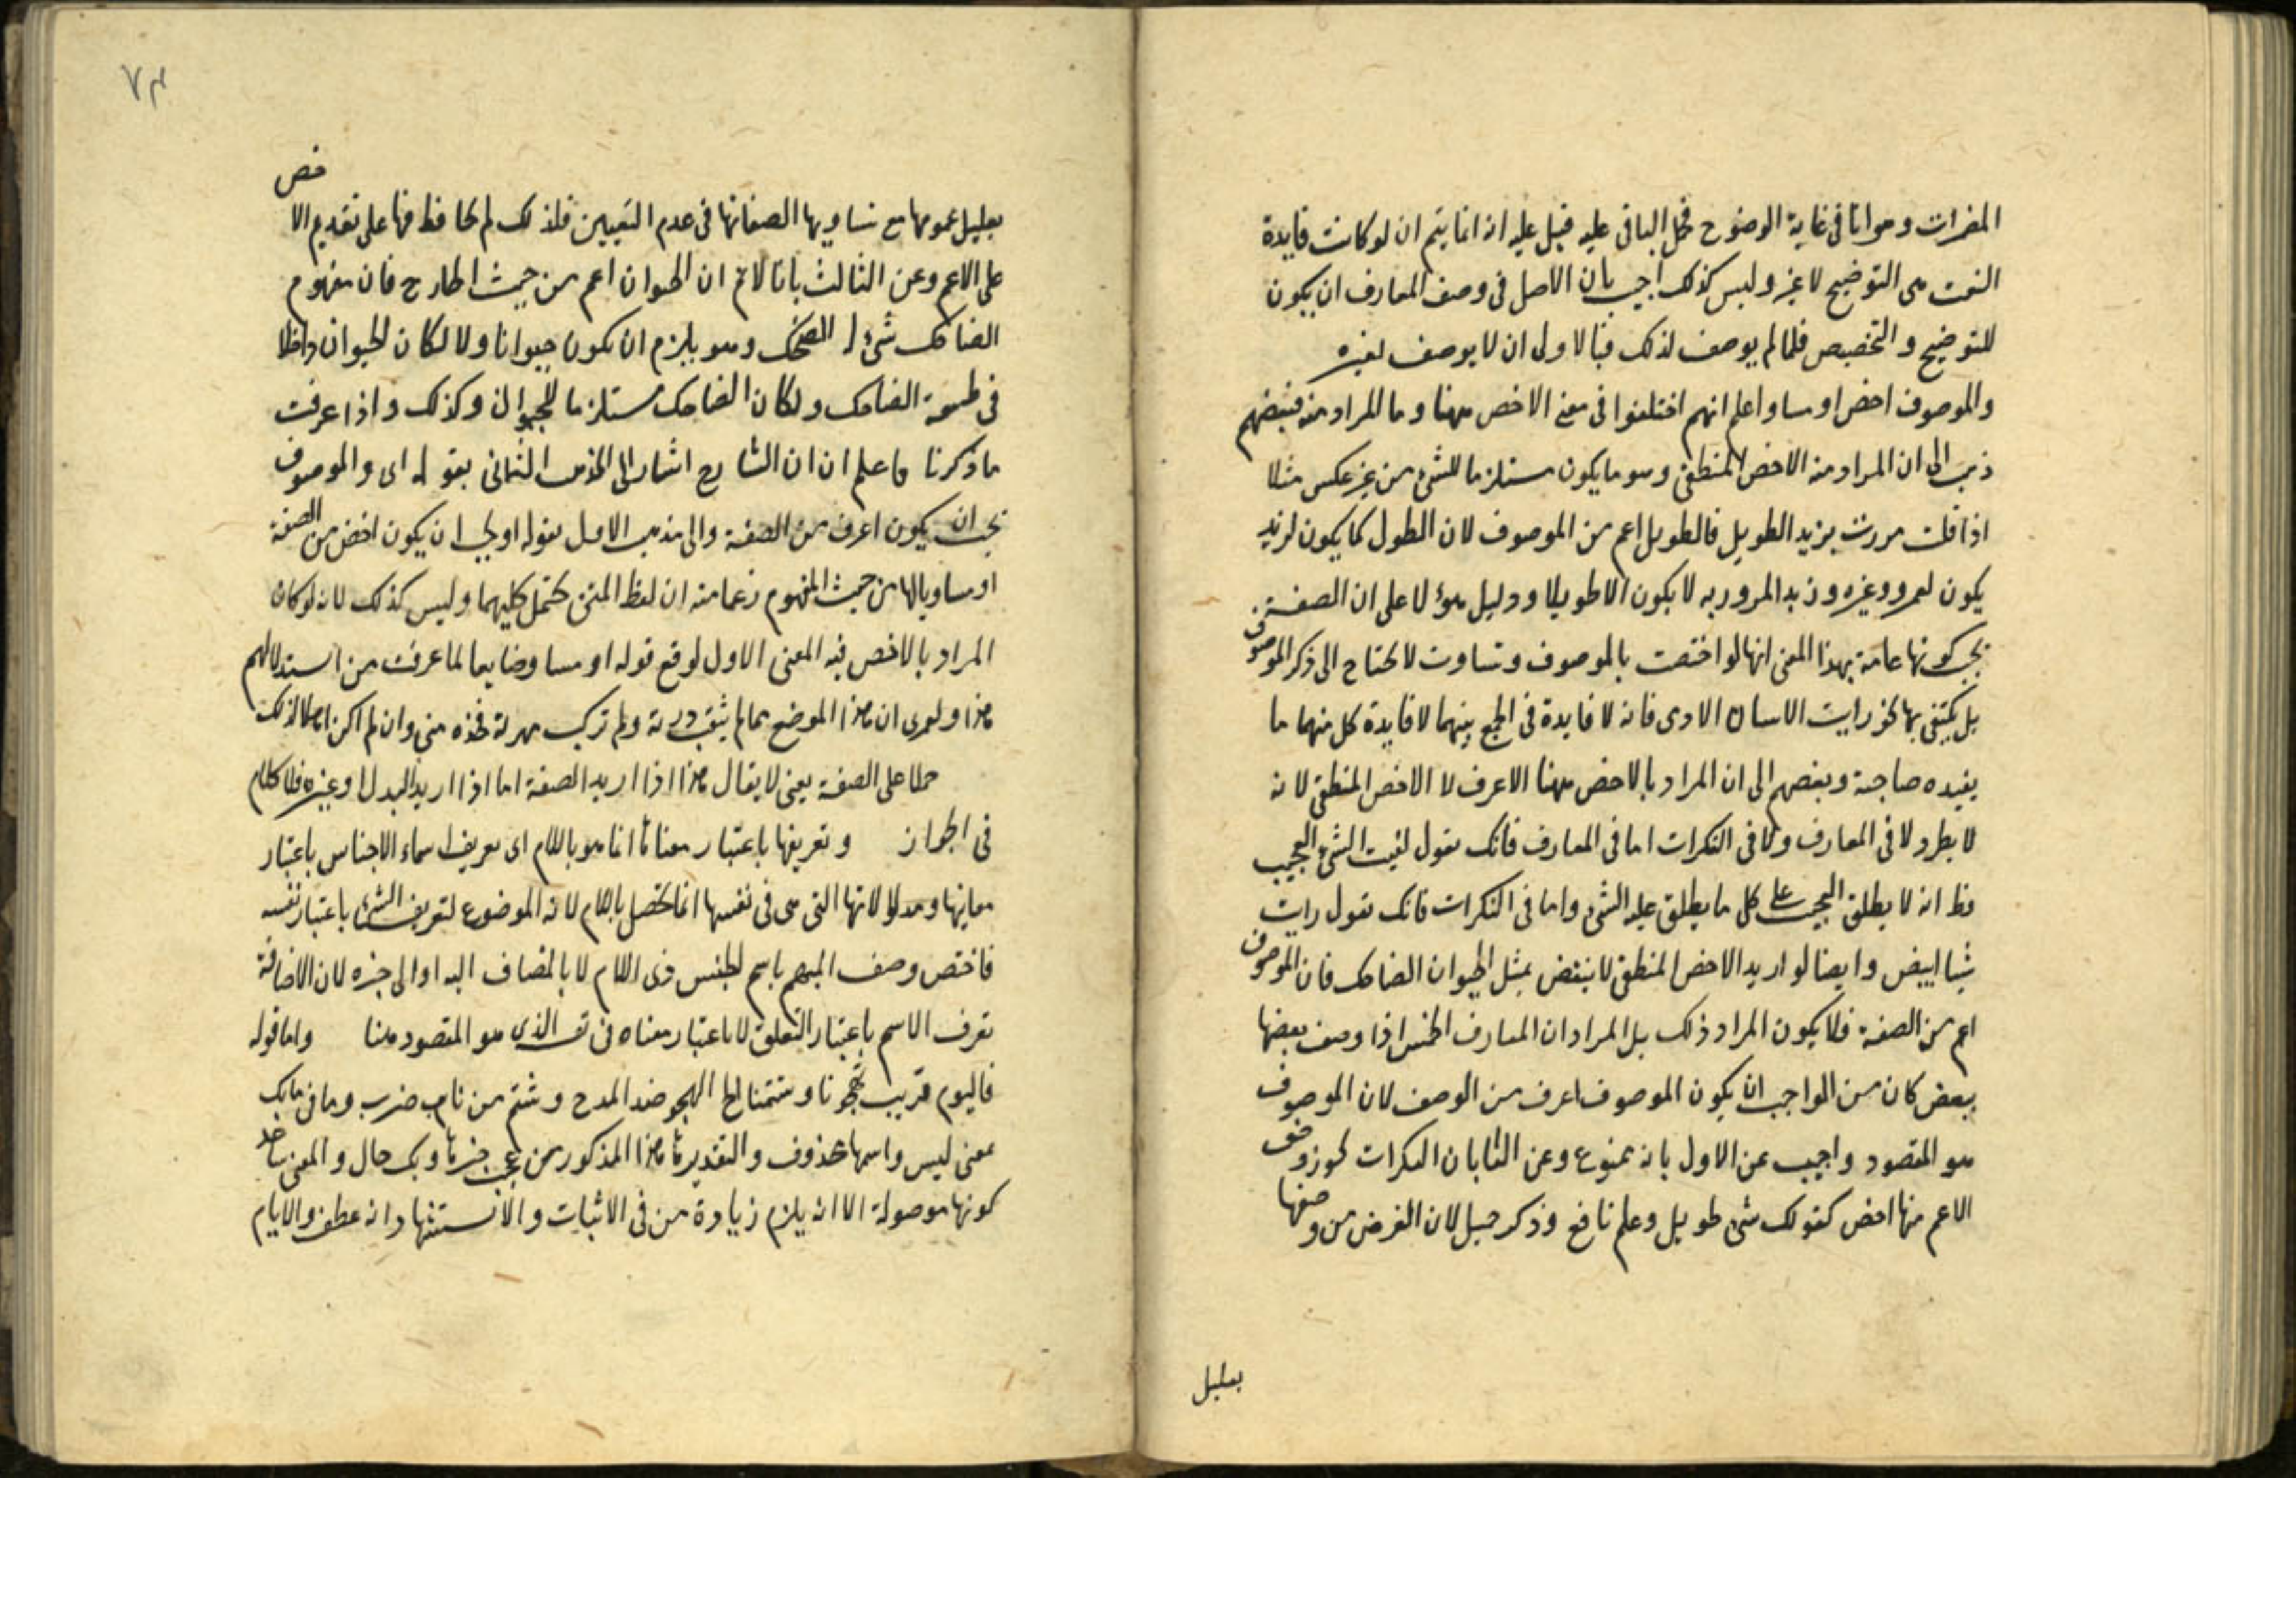 المضمرات وهو انا في غاية الوضوح فحمل الباقي عليه قيل عليه انه انما يتم ان لو كانت فايدة
النعت هي التوضيح لا غير وليس كذلك اجيب بان الاصل في وصف المعارف ان يكون
للتوضيح والتخصيص فلما لم يوصف لذلك فبالاولى ان لا يوصف لغيره
والموصوف اخص او مساو اعلم انهم اختلفوا في معنى الاخص ههنا وما المراد منه فبعضهم
ذهب الى ان المراد منه الاخص المنطقي وهو ما يكون مستلزما للشيء من غير عكس مثلا
اذا قلت مررت بزيد الطويل فالطويل اعم من الموصوف لان الطول كما يكون لزيد
يكون لعمرو وغيره وزيد المرور به لا يكون الا طويلا ودليل هؤلا على ان الصفة
يجب كونها عامة بهذا المعنى انها لو اختصت بالموصوف وتساوت لا يحتاج الى ذكر الموصوف
بل يكتفي بها نحو رايت الانسان الادمى فانه لا فايدة في الجمع بينهما لافايدة كل منهما ما
يفيده صاحبه وبعضهم الى ان المراد بالاخص ههنا الاعرف لا الاخص المنطقي لانه
لا يطرد لا في المعارف ولا في النكرات اما في المعارف فانك تقول لقيت الشيء العجيب
وظ انه لا يطلق العجيب على كل ما يطلق عليه الشيء واما في النكرات فانك تقول رايت
شيا ابيض وايضا لو اريد الاخص المنطقي لانتقض بمثل الحيوان الضاحك فان الموصوف
اعم من الصفة فلا يكون المراد ذلك بل المراد ان المعارف الخمس اذا وصف بعضها
ببعض كان من الواجب ان يكون الموصوف اعرف من الوصف لان الموصوف
هو المقصود واجيب عن الاول بانه ممنوع وعن الثا بان النكرات يجوز وصف
الاعم منها اخص كقولك شيء طويل وعلم نافع وذكر جميل لان الغرض من وصفها
بعليل
٧٤
خص
بعليل عمومها مع تساويها الصفاتها في عدم التعيين فلذلك لم يحافظ فيها على تقديم الا
على الاعم وعن الثالث بانا لا نم ان الحيوان اعم من حيث الخارج فان مفهوم
الضاحك شيء له الضحك وهو يلزم ان يكون حيوانا ولا لكان الحيوان داخلا
في طبيعة الضاحك ولكان الضاحك مستلزما للحيوان وكذلك واذا عرفت
ما ذكرنا فاعلم ان ان الشارح اشار الى المذهب الثانى بقوله اى والموصوف
يجب ان يكون اعرف من الصفة والى مذهب الاول بقوله او يجب ان يكون اخص من الصفة
او مساويا لها من حيث المفهوم زعما منه ان لفظ المتن يحتمل كليهما وليس كذلك لانه لو كان
المراد بالاخص فيه المعنى الاول لوقع قوله او مساو ضايعا لما عرفت من استدلالهم
هذا ولعمرى ان هذا الموضع مما لم يثقب درته ولم تركب مهرته فخذه منى وان لم اكن اهلا لذلك
حملا على الصفة يعنى لا يقال هذا اذا اريد الصفة اما اذا اريد البدل او غيره فلا كلام
في الجواز وتعريفها باعتبار معناها انما هو باللام اى تعريف اسماء الاجناس باعتبار
معانيها ومدلولاتها التى هى في نفسها انما تحصل باللام لانه الموضوع لتعريف الشيء باعتبار نفسه
فاختص وصف المبهم باسم الجنس ذى اللام لا بالمضاف اليه او الى غيره لان الاضافة
تعرف الاسم باعتبار التعلق لا باعتبار معناه في نف الذى هو المقصود منا واما قوله
فاليوم قريب تهجونا وتشتمنا الخ الهجو ضد المدح وشتم من باب ضرب وما في مابك
بمعنى ليس واسمها محذوف والتقدير ما هذا المذكور من عجب خبرها وبك حال والمعنى
كونها موصولة الا انه يلزم زيادة من في الاثبات والاستشهاد انه عطف والايام